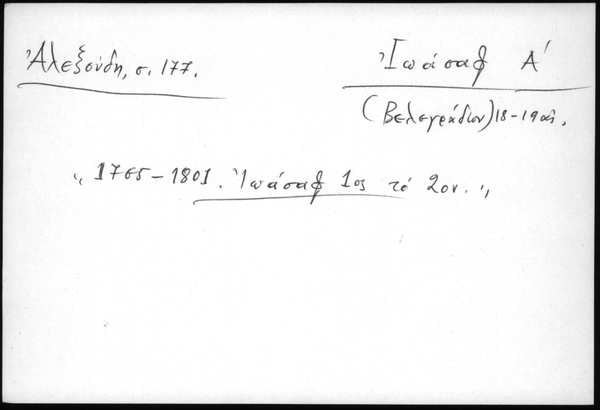 Ἀλεξούδη, σ. 177.
Ἰωάσαφ Α΄
(Βελεγράδων) 18-19 αἰ.
"1765-1801. Ἰωάσαφ 1ος τό 2ον."